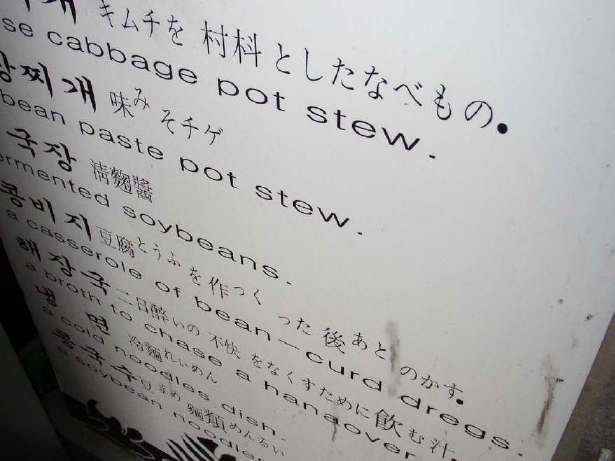 찌개 キムチを 村料としたなべもの.
se cabbage pot stew.
장찌개 味みそチゲ
bean paste pot stew.
국장 淸麴醬
ermented soybeans.
콩비지 豆腐とうふを作つくった後あとのかす.
a casserole of bean-curd dregs.
해장국 二日酔いの不快をなくすために飲む汁.
a broth to chase a hangover
냉면 冷麵れいめん
a cold noodles dish.
콩국수 豆まめ麵類めんるい
a soybean noodles